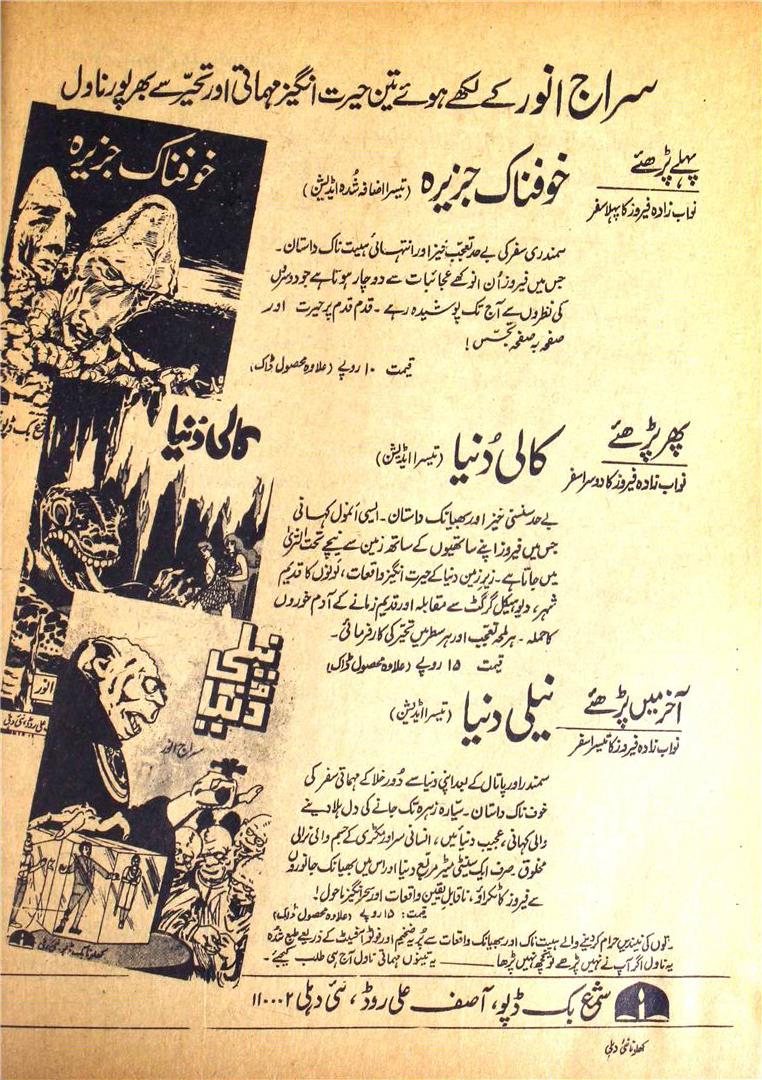 سراج انور کے لکھے ہوئے تین حیرت انگیز مہماتی اور تحیّر سے بھرپور ناول
پہلے پڑھئے
نواب زادہ فیروز کا پہلا سفر
خوفناک جزیرہ (تیسرا اضافہ شدہ ایڈیشن)
سمندری سفر کی بے حد تعجب خیز اور انتہائی ہیبت ناک داستان۔
جس میں فیروز اُن انوکھے عجائبات سے دوچار ہوتا ہے جو دوسروں
کی نظروں سے آج تک پوشیدہ رہے۔ قدم قدم پر حیرت اور
صفحہ بہ صفحہ تجسّس!
قیمت ۱۰ روپے (علاوہ محصول ڈاک)
پھر پڑھئے
نواب زادہ فیروز کا دوسرا سفر
کالی دُنیا (تیسرا ایڈیشن)
بے حد سنسنی خیز اور بھیانک داستان۔ ایسی انمول کہانی
جس میں فیروز اپنے ساتھیوں کے ساتھ زمین سے نیچے تحت الثریٰ
میں جاتا ہے۔ زیر زمین دنیا کے حیرت انگیز واقعات، بونوں کا قدیم
شہر، دیوہیکل گرگٹ سے مقابلہ اور قدیم زمانے کے آدم خوروں
کا حملہ۔ ہر لمحہ تعجب اور ہر سطر میں تحیّر کی کارفرمائی۔
قیمت ۱۵ روپے (علاوہ محصول ڈاک)
آخر میں پڑھئے
نواب زادہ فیروز کا تیسرا سفر
نیلی دنیا (تیسرا ایڈیشن)
سمندر اور پاتال کے بعد اپنی دنیا سے دُور خلا کے مہماتی سفر کی
خوف ناک داستان۔ سیّارہ زہرہ تک جانے کی دل ہلا دینے
والی کہانی، عجیب دنیائیں، انسانی سر اور مکڑی کے جسم والی نرالی
مخلوق۔ صرف ایک سنٹی میٹر مربع دنیا اور اس میں بھیانک جانوروں
سے فیروز کا ٹکراؤ، ناقابلِ یقین واقعات اور سحر انگیز ماحول!
قیمت: ۱۵ روپے (علاوہ محصول ڈاک)
کی نیندیں حرام کر دینے والے ہیبت ناک اور بھیانک واقعات سے پُر یہ ضخیم اور فوٹو آفسیٹ کے ذریعے طبع شدہ
یہ ناول اگر آپ نے نہیں پڑھے تو کچھ نہیں پڑھا ـــــــ یہ تینوں مہماتی ناول آج ہی طلب کیجئے۔
شمع بک ڈپو، آصف علی روڈ، نئی دہلی ۱۱۰۰۰۲
کھلونا نئی دہلی
خوفناک جزیرہ
شمع بک ڈپو
کالی دُنیا
انور
علی روڈ، نئی دہلی
نیلی دنیا
سراج انور